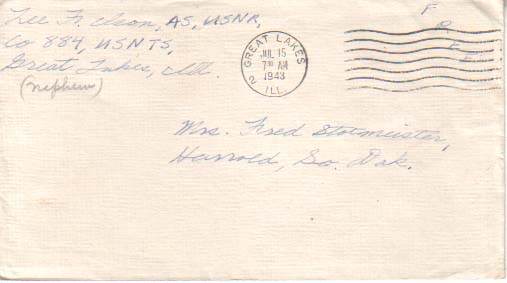 Lee Fr. Olson, AS, USNR,
Co 884, USNTS,
Great Lakes, Ill.
(nephew)
GREAT LAKES
JUL 15
7 30 AM
1943
2
ILL.
F
R
E
E
Mrs. Fred Stotmeister,
Harrold, So. Dak.